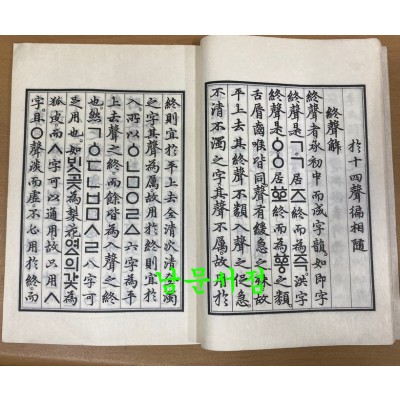 於十四聲徧相隨
終聲解
終聲者承初中而成字韻。如即字
終聲是ㄱ。ㄱ居즈終而為즉。洪字
終聲是ㆁ。ㆁ居ᅘᅩ終而為ᅘᅩᆼ之類。
舌脣齒喉皆同。聲有緩急之殊。故
平上去其終聲不類入聲之促急。
不清不濁之字。其聲不厲。故用於
終則宜於平上去。全清次清全濁
之字。其聲為厲。故用於終則宜於
入。所以ㆁㄴㅁㅇㄹㅿ六字為平
上去聲之終。而餘皆為入聲之終
也。然ㄱㆁㄷㄴㅂㅁㅅㄹ八字可
足用也。如ᄇᆡᆺ곶為梨花。여ᇫ의갗為
狐皮。而ㅅ字可以通用。故只用ㅅ
字。且ㅇ聲淡而虛。不必用於終。而
남문서점